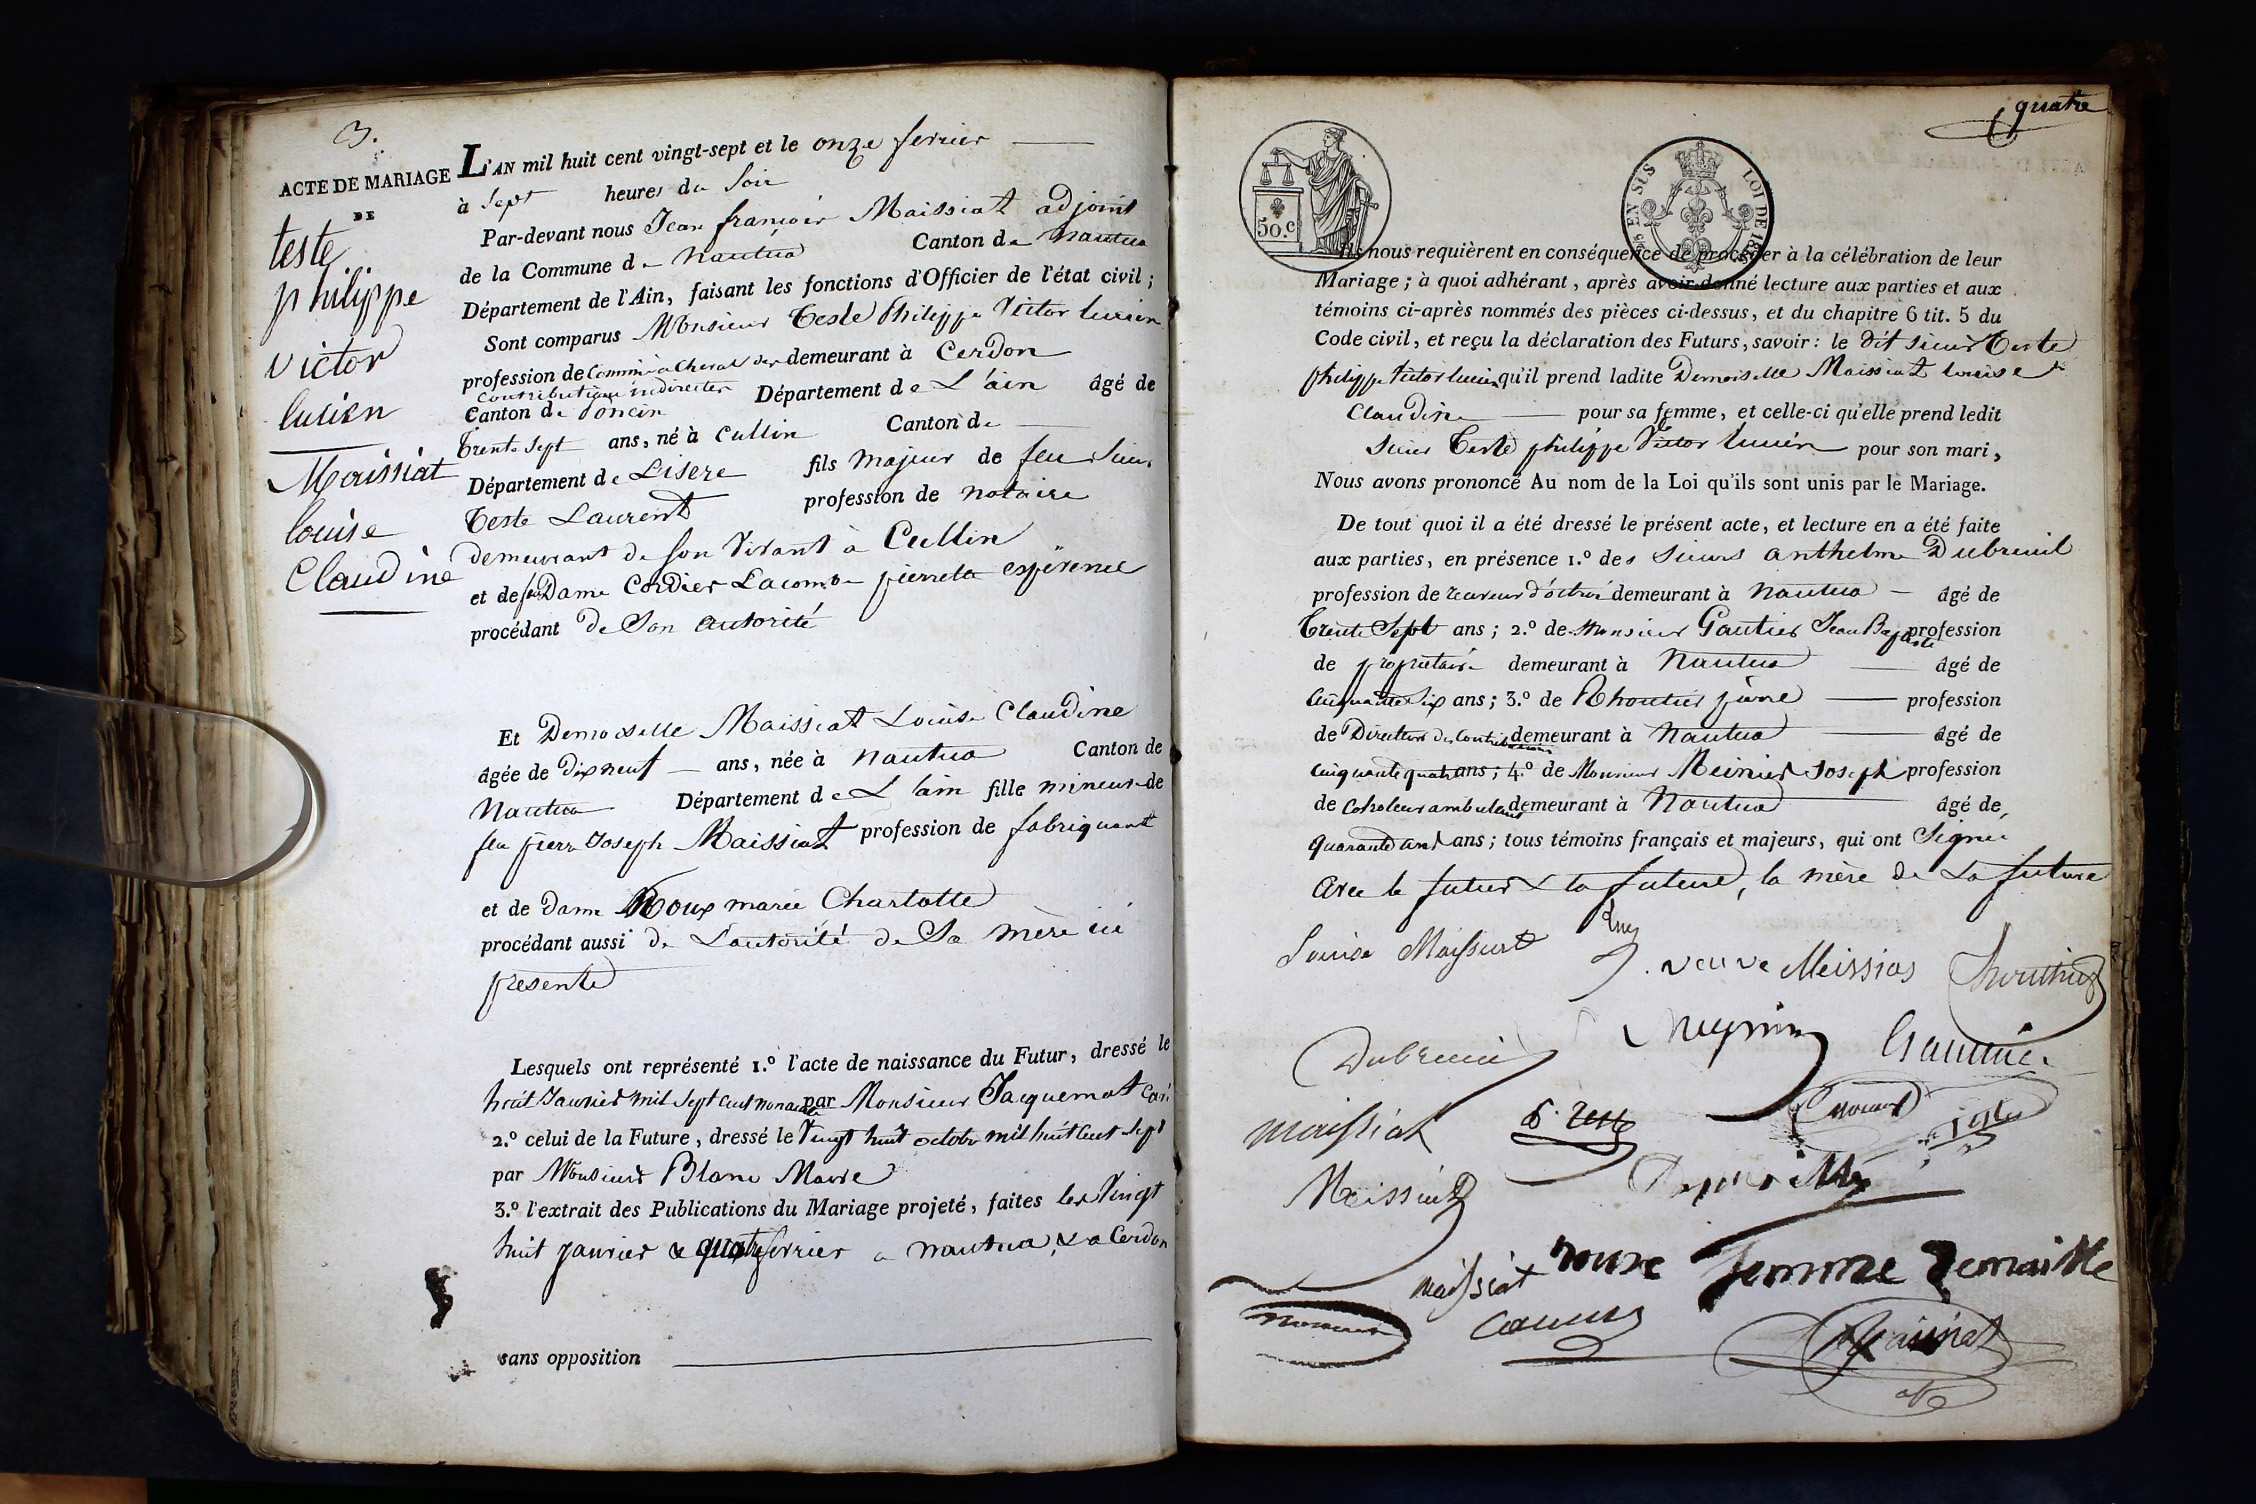 3.
ACTE DE MARIAGE
DE
teste
philippe
victor
lucien
Maissiat
louise
Claudine
L'AN mil huit cent vingt-sept et le onze fevrier
à Sept heures du Soir
Par-devant nous Jean françois Maissiat adjoint
de la Commune de Nantua Canton de Nantua
Département de l'Ain, faisant les fonctions d'Officier de l'état civil ;
Sont comparus Monsieur Teste Philippe Victor lucien
profession de Commis à Cheval des demeurant à Cerdon
Contributions indirectes
Canton de Poncin Département de L'ain âgé de
trente Sept ans, né à Cullin Canton de
Département de L'isere fils majeur de feu Sieur
Teste Laurent profession de notaire
demeurant de Son Vivant à Cullin
et de feu Dame Cordier Lacombe pierrette espérence
procédant de Son autorité
Et Demoiselle Maissiat Louise Claudine
âgée de dix neuf ans, née à Nantua Canton de
Nantua Département de L'ain fille mineure de
feu pierre Joseph Maissiat profession de fabriquant
et de Dame Roux marie Charlotte
procédant aussi de L'autorité de Sa mère ici
presente
Lesquels ont représenté 1.º l'acte de naissance du Futur, dressé le
huit Janvier mil Sept cent nonante par Monsieur Jacquemot Curé
2.º celui de la Future, dressé le Vingt huit octobre mil huit Cent Sept
par Monsieur Blanc Maire
3.º l'extrait des Publications du Mariage projeté, faites les Vingt
huit janvier & quatre fevrier a nantua, & a Cerdon
sans opposition
quatre
50.c
EN SUS LOI DE
Ils nous requièrent en conséquence de procéder à la célébration de leur
Mariage ; à quoi adhérant, après avoir donné lecture aux parties et aux
témoins ci-après nommés des pièces ci-dessus, et du chapitre 6 tit. 5 du
Code civil, et reçu la déclaration des Futurs, savoir : le dit Sieur Teste
philippe Victor lucien qu'il prend ladite Demoiselle Maissiat louise
Claudine pour sa femme, et celle-ci qu'elle prend ledit
Sieur Teste philippe Victor lucien pour son mari,
Nous avons prononcé Au nom de la Loi qu'ils sont unis par le Mariage.
De tout quoi il a été dressé le présent acte, et lecture en a été faite
aux parties, en présence 1.º des Sieurs anthelme Dubreuil
profession de receveur d'octroi demeurant à Nantua âgé de
Trente Sept ans ; 2.º de Monsieur Gautier Jean Baptiste profession
de propriétaire demeurant à Nantua âgé de
cinquante Six ans ; 3.º de Rhoutier pierre profession
de Directeur des Contributions demeurant à Nantua âgé de
cinquante quatre ans ; 4.º de Monsieur Meinier Joseph profession
de Controleur ambulant demeurant à Nantua âgé de
quarante ans ; tous témoins français et majeurs, qui ont Signé
avec le futur & la future, la mère de La future
Louise Maissiat
veuve Meissias
Dubreuil
maissiat
Meissiat
maissiat
roux femme